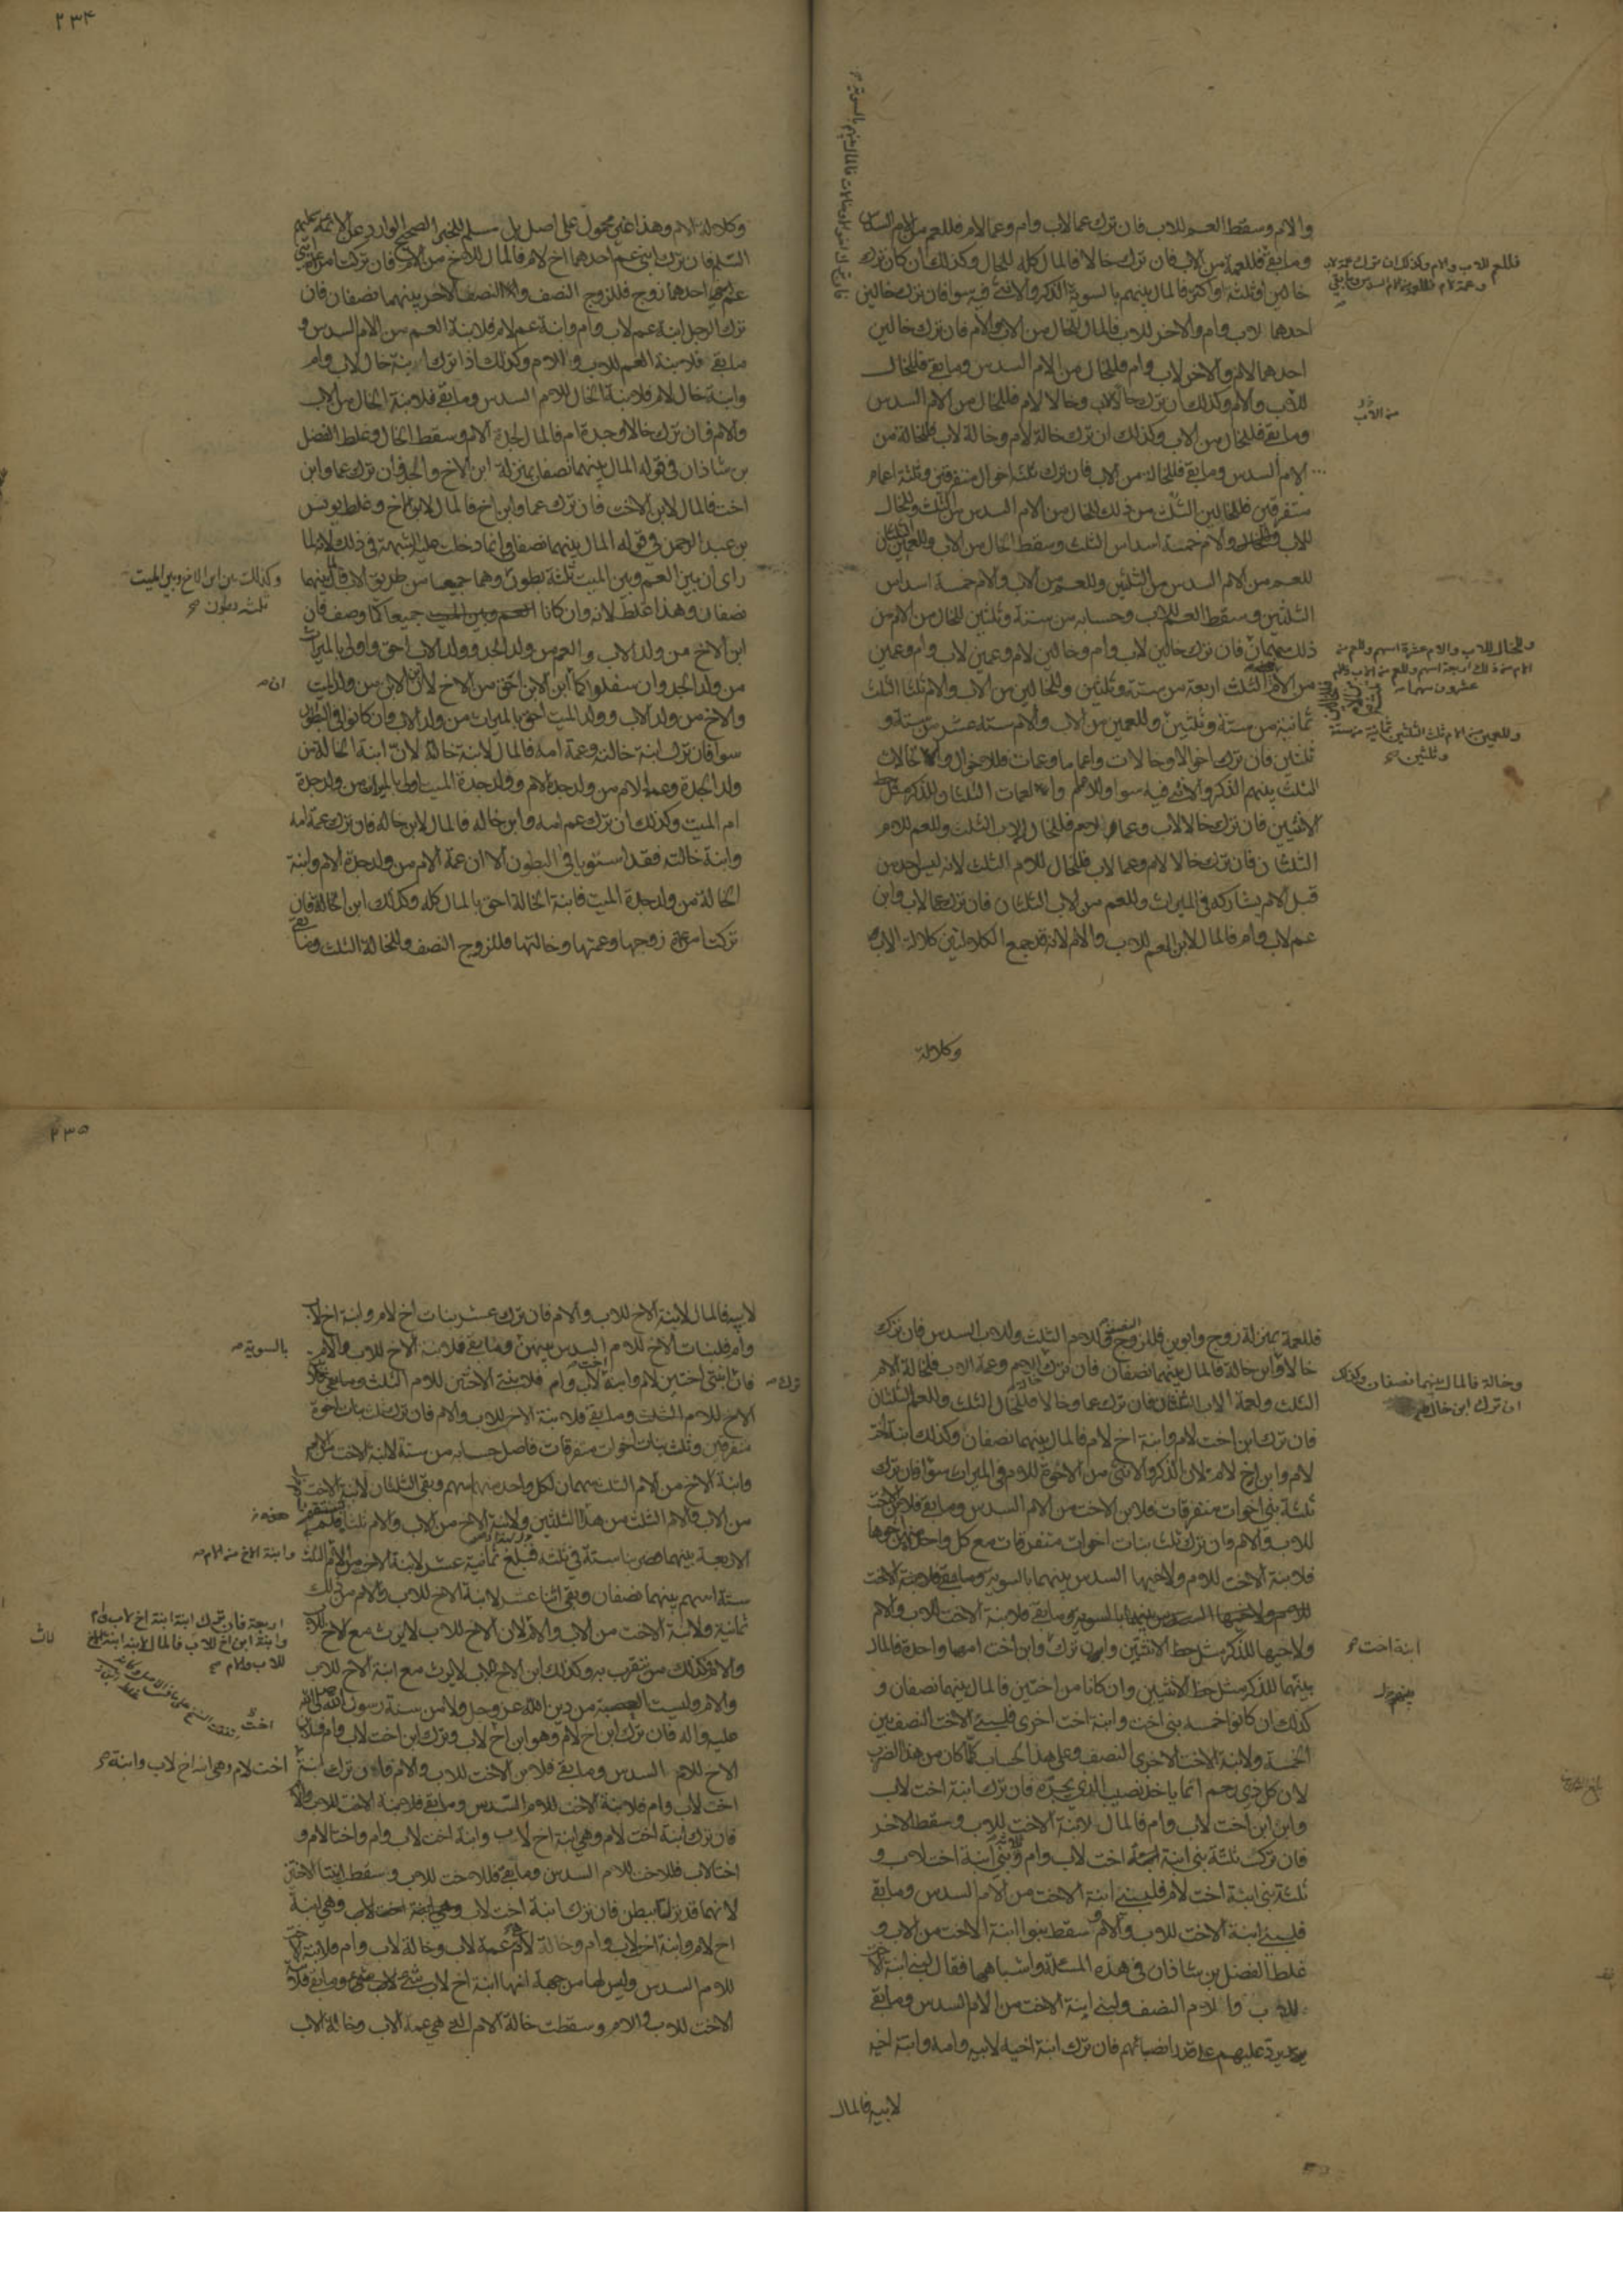 والام وسقط العم للاب فان ترك عما لاب وام وعما لام فللعم من الام السدس
وما بقى فللعم من الاب فان ترك خالا فالمال كله للخال وكذلك ان كان ترك
خالين او ثلثة او اكثر فالمال بينهم بالسوية الذكر والانثى فيه سوا فان ترك خالين
احدهما لاب وام والاخر للاب فالمال للخال من الاب والام فان ترك خالين
احدهما لام والاخر لاب وام فللخال من الام السدس وما بقى فللخال
للاب والام وكذلك ان ترك خالا لاب وخالا لام فللخال من الام السدس
وما بقى فللخال من الاب وكذلك ان ترك خالة لام وخالة لاب فللخالة من
الام السدس وما بقى فللخالة من الاب فان ترك ثلثة اخوال متفرقين وثلثة اعمام
متفرقين فللخالين الثلث من ذلك للخال من الام السدس من الثلث وللخال
للاب والام خمسة اسداس الثلث وسقط الخال من الاب وللعمين الثلثان
للعم من الام السدس من الثلثين وللعم من الاب والام خمسة اسداس
الثلثين وسقط العم للاب وحسابه من ستة وثلثين للخال من الام من
ذلك سهمان فان ترك خالين لاب وام وخالين لام وعمين لاب وام وعمين
من الام الثلث اربعة من ستة وثلثين وللخالين من الاب والام ثلثا الثلث
ثمانية من ستة وثلثين وللعمين من الاب والام ستة عشر من ستة و
ثلثين فان ترك اخوالا وخالات واعماما وعمات فللاخوال والخالات
الثلث بينهم الذكر والانثى فيه سوا وللاعمام والعمات الثلثان للذكر مثل حظ
الانثيين فان ترك خالا لاب وعما لام فللخال للاب الثلث وللعم للام
الثلثان فان ترك خالا لام وعما لاب فللخال للام الثلث لانه ليس احد من
قبل الام يشاركه في الميراث وللعم من الاب الثلثان فان ترك عما لاب وابن
عم لاب وام فالمال لابن العم للاب والام لانه قد جمع الكلالتين كلالة الاب
وكلالة
فللعم للاب والام وكذلك ان ترك عمة لاب
وعمة لام فللعمة من الام السدس وما بقى
من الاب
وللخال للاب والام عشرة اسهم وللعم من
الام من ذلك اربعة اسهم وللعم من الاب والام
عشرون سهما
وللعمين من الام ثلث الثلثين ثمانية من ستة
وثلثين صح
٢٣٤
وكلالة الام وهذا غير محمول على اصل بل مسلم للخبر الصحيح الوارد عن الائمة عليهم
السلم فان ترك ابنى عم احدهما اخ لام فالمال للاخ من الام فان تركت امراة ابنى
عم احدهما زوج فللزوج النصف والنصف الاخر بينهما نصفان فان
ترك الرجل ابنة عم لاب وام وابنة عم لام فلابنة العم من الام السدس و
ما بقى فلابنة العم للاب والام وكذلك اذا ترك ابنة خال لاب وام
وابنة خال لام فلابنة الخال للام السدس وما بقى فلابنة الخال من الاب
والام فان ترك خالا وجدة ام فالمال لجدة الام وسقط الخال وغلط الفضل
بن شاذان في قوله المال بينهما نصفان بمنزلة ابن الاخ والجد فان ترك عما وابن
اخت فالمال لابن الاخت فان ترك عما وابن اخ فالمال لابن الاخ وغلط يونس
بن عبد الرحمن في قوله المال بينهما نصفان وانما دخلت عليه الشبهة في ذلك لانه لما
راى ان بين العم وبين الميت ثلثة بطون وهما جميعا من طريق الاب قال بينهما
نصفان وهذا غلط لانه وان كانا جميعا كما وصف فان
ابن الاخ من ولد الاب والعم من ولد الجد وولد الاب احق واولى بالميراث
من ولد الجد وان سفلوا كما ابن الابن احق من الاخ لان ابن الابن من ولد الميت
والاخ من ولد الاب وولد الميت احق بالميراث من ولد الاب وان كانوا في البطون
سوا فان ترك ابنة خالته وعمة امه فالمال لابنة خالته لان ابنة الخالة من
ولد الجدة وعمة الام من ولد جدة الام وولد جدة الميت اولى بالميراث من ولد جدة
ام الميت وكذلك ان ترك عم امه وابن خاله فالمال لابن خاله فان ترك عمة امه
وابنة خالته فقد استويا في البطون الا ان عمة الام من ولد جدة الام وابنة
الخالة من ولد جدة الميت فابنة الخالة احق بالمال كله وكذلك ابن الخالة فان
تركت امراة زوجها وعمتها وخالتها فللزوج النصف وللخالة الثلث وما بقى
وكذلك بين ابن الاخ وبين الميت
ثلثة بطون صح
فللعمة بمنزلة زوج وابوين فللزوج النصف وللام الثلث وللاب السدس فان ترك
خالا وابن خالة فالمال بينهما نصفان فان ترك خالة الام وعمة الاب فلخالة الام
الثلث ولعمة الاب الثلثان فان ترك عما وخالا فللخال الثلث وللعم الثلثان
فان ترك ابن اخت لام وابنة اخ لام فالمال بينهما نصفان وكذلك ابنة اخت
لام وابن اخ لام لان الذكر والانثى من الاخوة للام في الميراث سوا فان ترك
ثلثة بنى اخوات متفرقات فلابن الاخت من الام السدس وما بقى فلابن الاخت
للاب والام وان ترك ثلث بنات اخوات متفرقات مع كل واحدة منهن اخوها
فلابنة الاخت للام ولاخيها السدس بينهما بالسوية وما بقى فلابنة الاخت
للاب والام
ولاخيها للذكر مثل حظ الانثيين وان ترك وابن اخت امهما واحدة فالمال
بينهما للذكر مثل حظ الانثيين وان كانا من اختين فالمال بينهما نصفان و
كذلك ان كانوا خمسة بنى اخت وابنة اخت اخرى فلبنى الاخت النصف بين
الخمسة ولابنة الاخت الاخرى النصف وعلى هذا الحساب كلما كان من هذا الضرب
لان كل ذى رحم انما ياخذ نصيب الذى يجره فان ترك ابنة اخت لاب
وابن ابن اخت لاب وام فالمال لابنة الاخت للاب وسقط الاخر
فان ترك ثلثة بنى ابنة اخت لاب وام وثلثة بنى ابنة اخت لاب و
ثلثة بنى ابنة اخت لام فلبنى ابنة الاخت من الام السدس وما بقى
فلبنى ابنة الاخت للاب والام وسقط بنوا ابنة الاخت من الاب و
غلط الفضل بن شاذان في هذه المسئلة واشباهها فقال لبنى ابنة الاخت
للاب والام النصف ولبنى ابنة الاخت من الام السدس وما بقى
يرد عليهم على قدر انصبائهم فان ترك ابنة اخيه لابيه وامه وابنة اخيه
لابيه فالمال
وخالة فالمال بينهما نصفان وكذلك
ان ترك ابن خال
ابنة اخت صح
٢٣٥
لابيه فالمال لابنة الاخ للاب والام فان ترك عشر بنات اخ لام وابنة اخ لاب
وام فلبنات الاخ للام السدس بينهن وما بقى فلابنة الاخ للاب والام
فان ابنتى اختين لام وابنة اخت لاب وام فلابنتى الاختين للام الثلث وما بقى
الاخ للام الثلث وما بقى فلابنة الاخ للاب والام فان ترك ثلث بنات اخوة
متفرقين وثلث بنات اخوات متفرقات فاصل حسابه من ستة لابنة الاخت من الام
وابنة الاخ من الام الثلث سهمان لكل واحدة منهما سهم وبقى الثلثان لابنة الاخت
من الاب والام الثلث من هذا الثلثين ولابنة الاخ من الاب والام ثلثا
الاربعة بينهما فضربنا ستة في ثلثة فبلغ ثمانية عشر لابنة الاخت من الام الثلث
ستة اسهم بينهما نصفان وبقى اثنا عشر لابنة الاخ للاب والام من ذلك
ثمانية ولابنة الاخت من الاب والام لان الاخ للاب لا يرث مع الاخ للاب
والام وكذلك من يتقرب به وكذلك ابن الاخ للاب لا يرث مع ابنة الاخ للاب
والام وليست العصبة من دين الله عز وجل ولا من سنة رسول الله صلى الله
عليه واله فان ترك ابن اخ لام وهو ابن اخ لاب وترك ابن اخت لاب وام فلابن
الاخ للام السدس وما بقى فلابن الاخت للاب والام فان ترك ابنة
اخت لاب وام فلابنة الاخت للام السدس وما بقى فلابنة الاخت للاب والام
فان ترك ابنة اخت لام وهى ابنة اخ لاب وابنة اخت لاب وام واختا لام و
اختا لاب فللاخت للام السدس وما بقى فللاخت للاب وسقط ابنتا الاختين
لانهما قد نزلتا ببطن فان ترك ابنة اخت لاب وهى ابنة
اخ لام وابنة اخ لاب وام وخالة لام عمة لاب وخالة لاب وام فلابنة الاخ
للام السدس وليس لها من جهة انها ابنة اخ لاب شئ وما بقى فلابنة
الاخت للاب والام وسقطت خالة الام التى هى عمة الاب وخالة الاب
بالسوية صح
ترك صح
وابنة الاخ من الام صح
اربعة فان ترك ابنة ابنة اخ لاب وام
وابنة ابن اخ للاب فالمال لابنة ابنة الاخ
للاب والام صح
اخت لام وهى ابنة اخ لاب وابنة صح